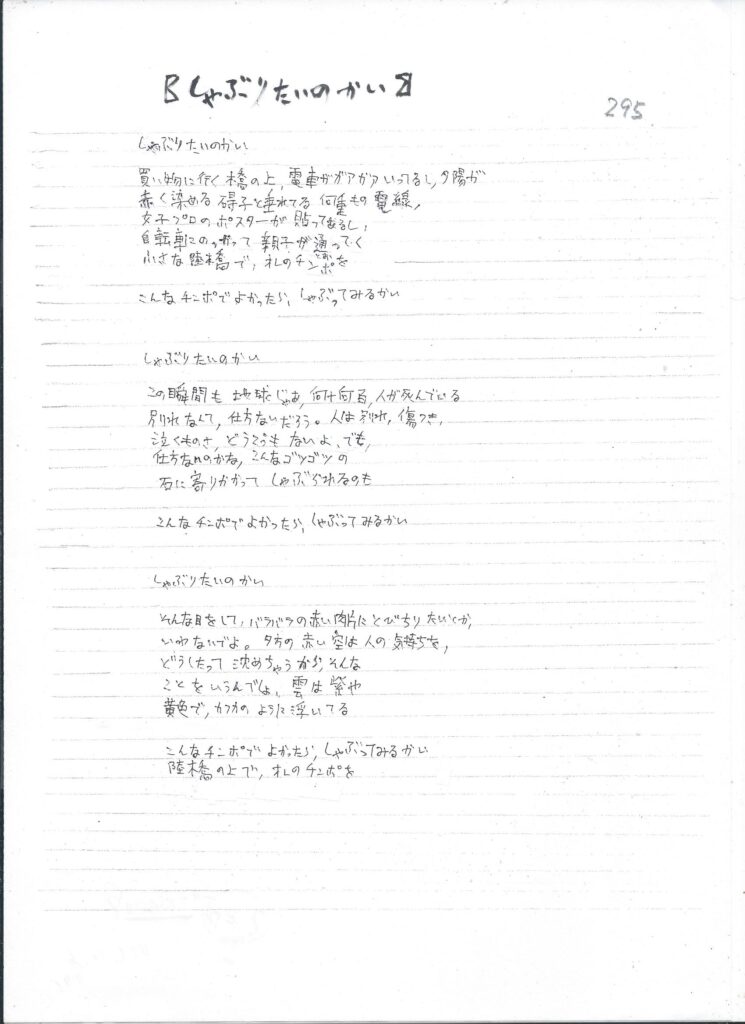 しゃぶりたいのかい
295
しゃぶりたいのかい
買い物に行く橋の上、電車がガアガアいってるし、夕陽が
赤く染める碍子と垂れてる何重もの電線、
女子プロのポスターが貼ってあるし、
自転車にのっかって親子が通ってく
小さな陸橋で、オレのチンポを
こんなチンポでよかったら、しゃぶってみるかい
しゃぶりたいのかい
この瞬間も地球じゃあ、何千何百、人が死んでいる
別れなんて、仕方ないだろう。人は別れ、傷つき、
泣くものさ、どうこうもないよ、でも、
仕方なmのかな、こんなゴツゴツの
石に寄りかかってしゃぶられるのも
こんなチンポでよかったら、しゃぶってみるかい
しゃぶりたいのかい
そんな目をして、バラバラの赤い肉片にとびちりたいとか、
いわないでよ。夕方の赤い空は人の気持ちを、
どうしたって沈めちゃうから、そんな
ことをいうんでしょ、雲は紫や
黄色で、カフカのように浮いてる
こんなチンポでよかったら、しゃぶってみるかい
陸橋の上で、オレのチンポを